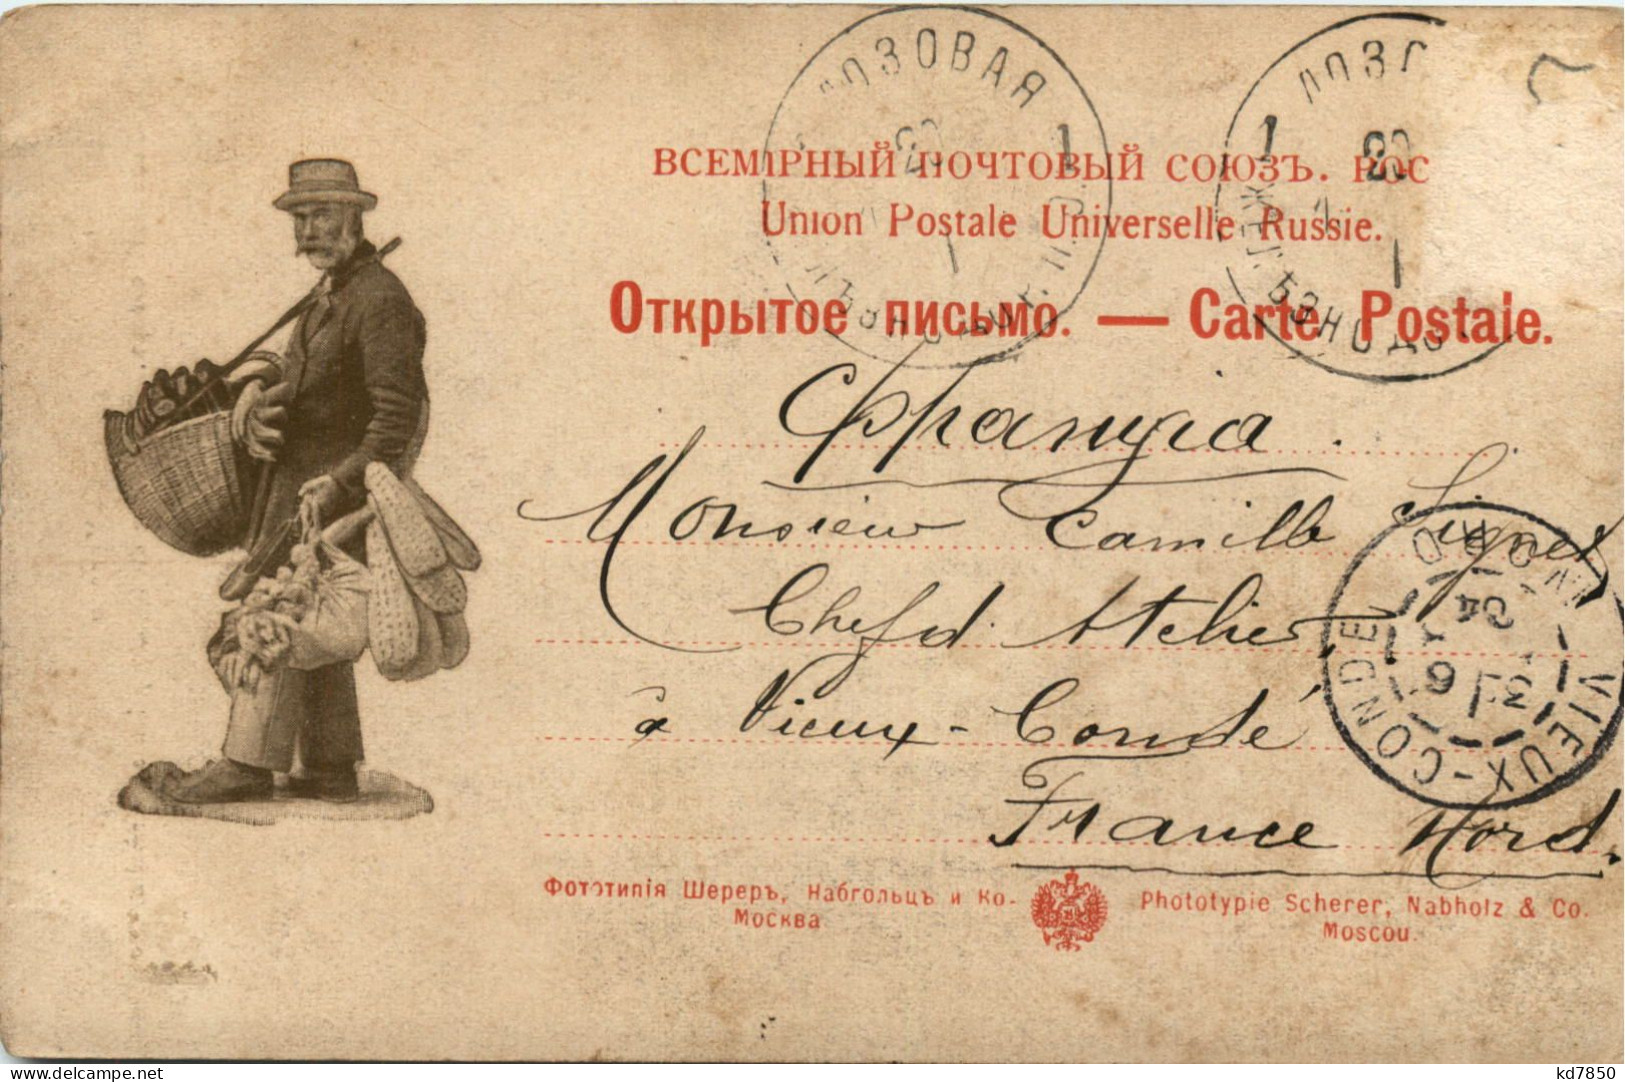 ОЗОВАЯ
1
ЛОЗ
1
ВСЕМІРНЫЙ ПОЧТОВЫЙ СОЮЗЪ. РОС
Union Postale Universelle Russie.
Открытое письмо. — Carte Postale.
Франція.
Monsieur Camille Signet
Chef d'Atelier
à Vieux-Condé
France Nord.
VIEUX-CONDÉ
NORD
04
Фототипія Шереръ, Набгольцъ и Ко.
Москва
Phototypie Scherer, Nabholz & Co.
Moscou.
kd7850